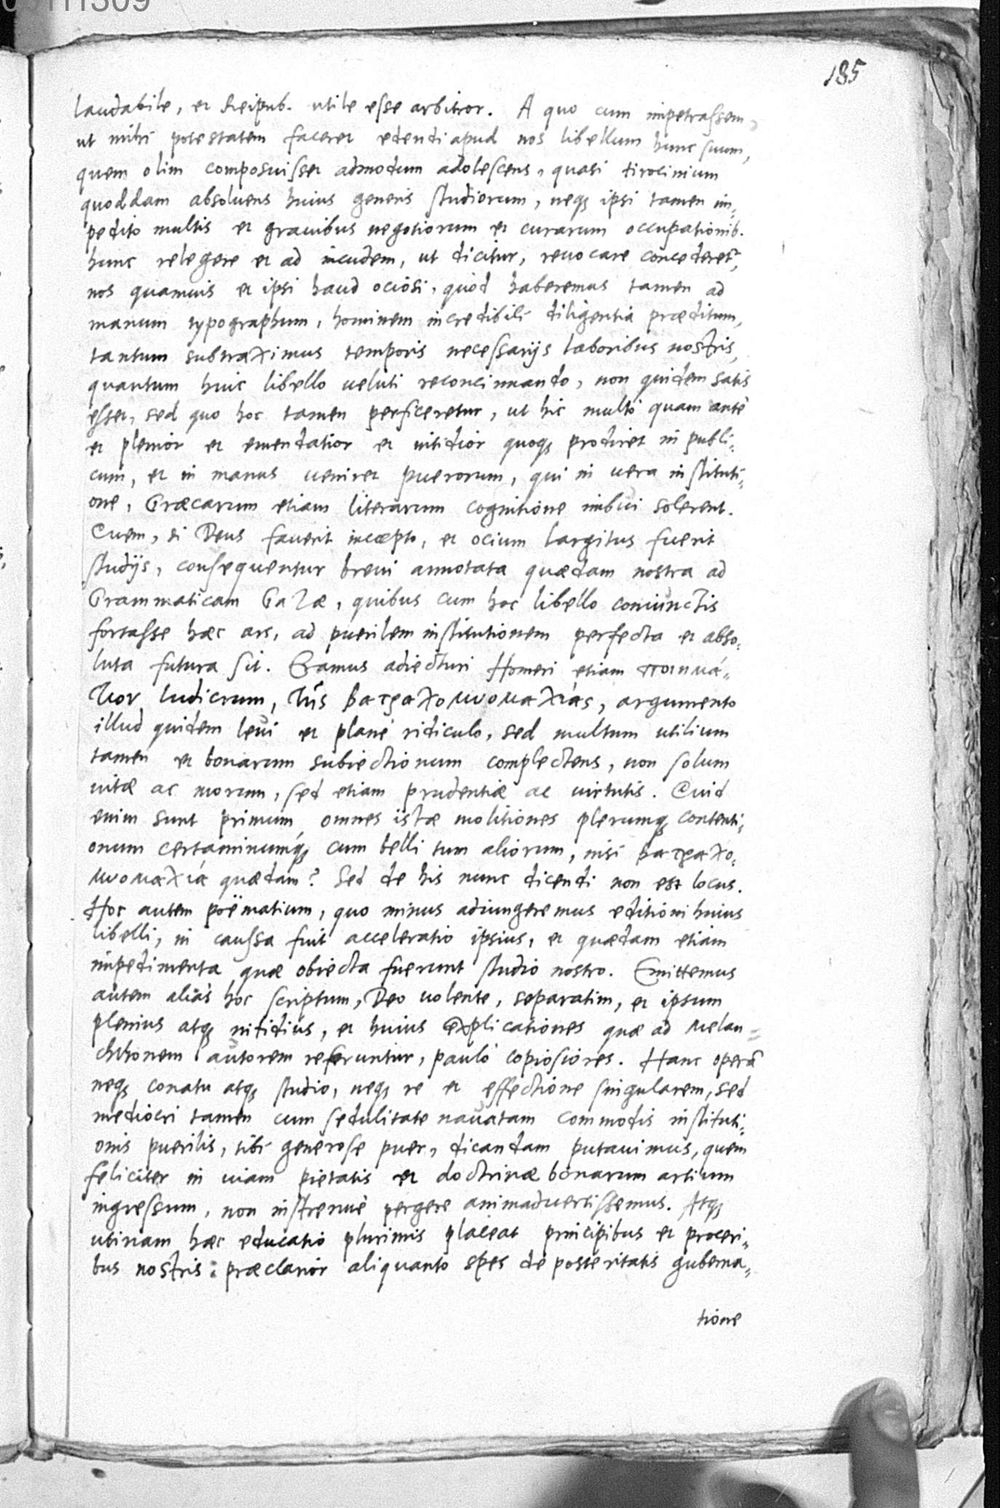 185
laudabile, et Reipub. utile esse arbitror. A quo cum impetrassem,
ut mihi potestatem faceret edendi apud nos libellum hunc suum,
quem olim composuisset admodum adolescens, quasi tirocinium
quoddam absolvens huius generis studiorum, neq; ipsi tamen im-
pedito multis et gravibus negotiorum et curarum occupationib.
hunc relegere et ad incudem, ut dicitur, revocare concederet,
nos quamvis et ipsi haud ociosi, quod haberemus tamen ad
manum typographum, hominem incredibili diligentia præditum,
tantum subtraximus temporis necessarijs laboribus nostris,
quantum huic libello veluti reconcinnando, non quidem satis
esset, sed quo hoc tamen perficeretur, ut hic multò quam antè
et plenior et emendatior et nitidior quoq; prodiret in publi-
cum, et in manus veniret puerorum, qui in vera instituti-
one, Græcarum etiam literarum cognitione imbui solerent.
Quem, si Deus faverit incœpto, et ocium largitus fuerit
studijs, consequentur brevi annotata quædam nostra ad
Grammaticam Gazæ, quibus cum hoc libello coniunctis
fortasse hæc ars, ad puerilem institutionem perfecta et abso-
luta futura sit. Eramus adiecturi Homeri etiam ποιημά-
τιον ludicrum, τῆς βατραχομυομαχίας, argumento
illud quidem levi et planè ridiculo, sed multum utilium
tamen et bonarum subiectionum complectens, non solum
vitæ ac morum, sed etiam prudentiæ ac virtutis. Quid
enim sunt primum omnes istæ molitiones plerumq; contenti-
onum certaminumq́; cum belli tum aliorum, nisi βατραχο-
μυομαχία quædam? Sed de his nunc dicendi non est locus.
Hoc autem poëmatium, quo minus adiungeremus editioni huius
libelli, in caussa fuit acceleratio ipsius, et quædam etiam
impedimenta quæ obiecta fuerunt studio nostro. Emittemus
autem aliàs hoc scriptum, Deo volente, separatim, et ipsum
plenius atq; nitidius, et huius explicationes quæ ad Melan-
chthonem autorem referuntur, paulò copiosiores. Hanc operã
neq; conatu atq; studio, neq; re et effectione singularem, sed
mediocri tamen cum sedulitate navatam commodis instituti-
onis puerilis, tibi generose puer, dicandam putavimus, quem
feliciter in viam pietatis et doctrinæ bonarum artium
ingressum, non instrenuè pergere animadvertissemus. Atq;
utinam hæc educatio plurimis placeat principibus et proceri-
bus nostris: præclarior aliquanto spes de posteritatis guberna-
tione